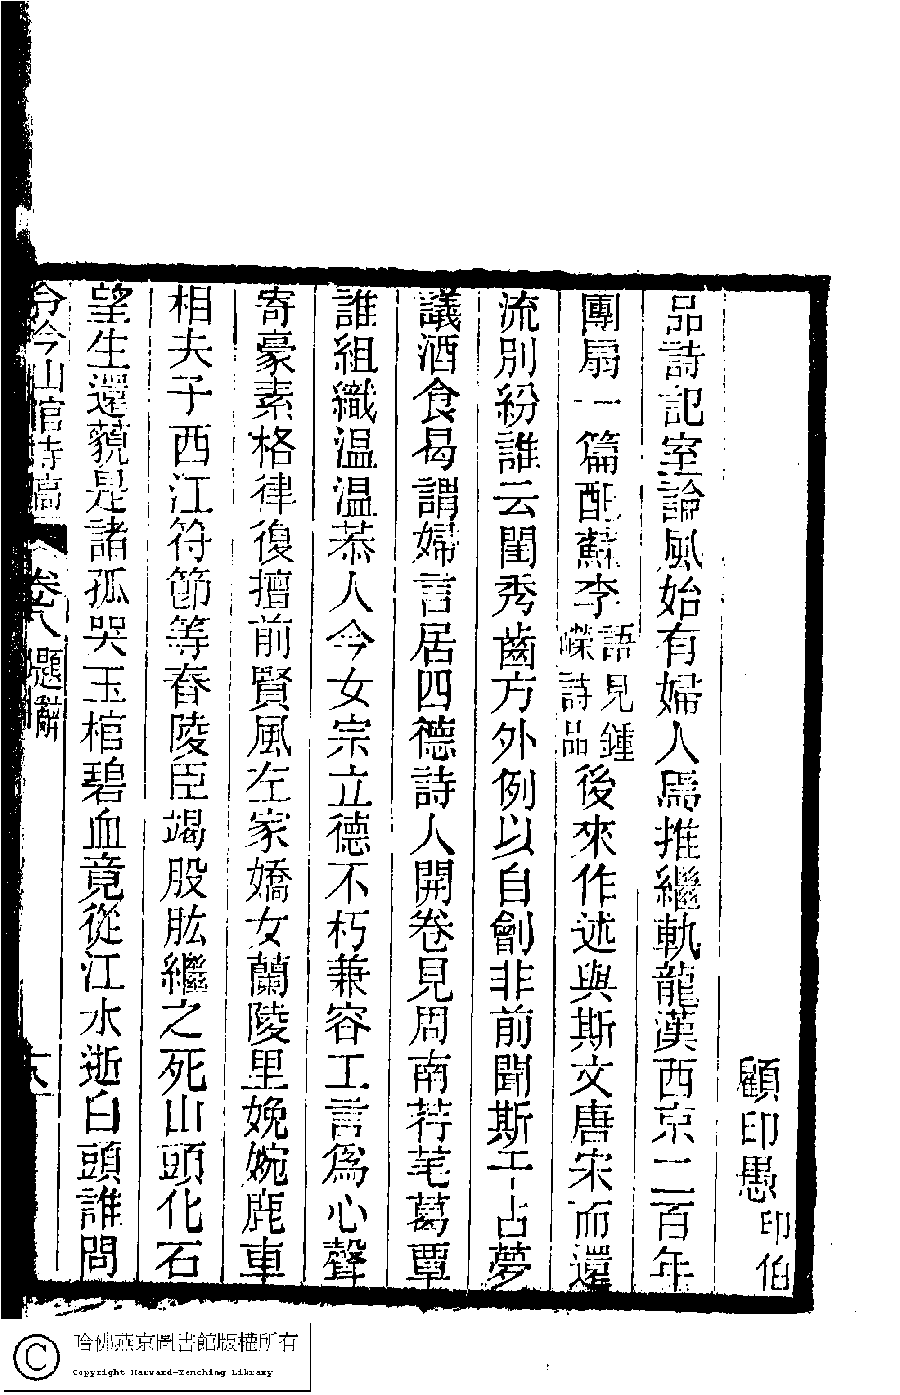 顧印愚印伯
品詩記室論風始有婦人焉推繼軌龍漢西京二百年
團扇一篇配蘇李語見鍾嶸詩品後來作述與斯文唐宋而還
流別紛誰云閨秀齒方外例以自鄶非前聞斯干占夢
議酒食曷謂婦言居四德詩人開卷見周南荇芼葛覃
誰組織温温恭人今女宗立德不朽兼容工言爲心聲
寄豪素格律復擅前賢風左家嬌女蘭陵里娩婉鹿車
相夫子西江符節等舂陵臣竭股肱繼之死山頭化石
望生還藐是諸孤哭玉棺碧血竟從江水逝白頭誰問
吟山館詩稿
卷八題辭
六
哈佛燕京圖書館版權所有
Copyright Harvard-Yenching Library